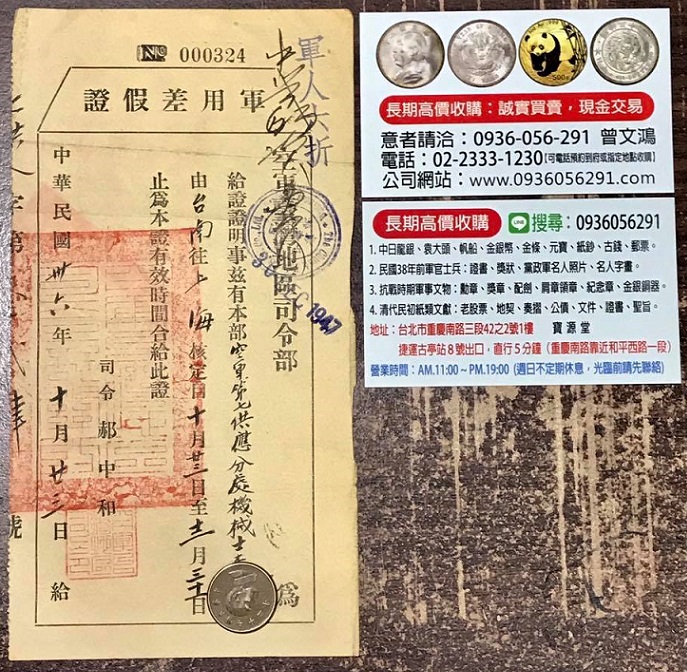 № 000324
軍用差假證
軍人六折
空軍臺灣地區司令部
給證證明事茲有本部空軍第七供應分處機械士
為
由台南往上海核定自十月廿三日至十二月三十日
止為本證有效時間合給此證
司令郝中和
中華民國卅六年十月廿三日給
字第
號
1947
500g
長期高價收購：誠實買賣，現金交易
意者請洽：0936-056-291 曾文鴻
電話：02-2333-1230【可電話預約到府或指定地點收購】
公司網站：www.0936056291.com
長期高價收購 LINE 搜尋：0936056291
1. 中日龍銀、袁大頭、帆船、金銀幣、金條、元寶、紙鈔、古錢、郵票。
2. 民國38年前軍官士兵：證書、獎狀、黨政軍名人照片、名人字畫。
3. 抗戰時期軍事文物：勳章、獎章、配劍、肩章領章、紀念章、金銀銅器。
4. 清代民初紙類文獻：老股票、地契、奏摺、公債、文件、證書、聖旨。
地址：台北市重慶南路三段42之2號1樓 寶源堂
捷運古亭站8號出口，直行5分鐘（重慶南路靠近和平西路一段）
營業時間：AM.11:00~PM.19:00 (週日不定期休息，光臨前請先聯絡)